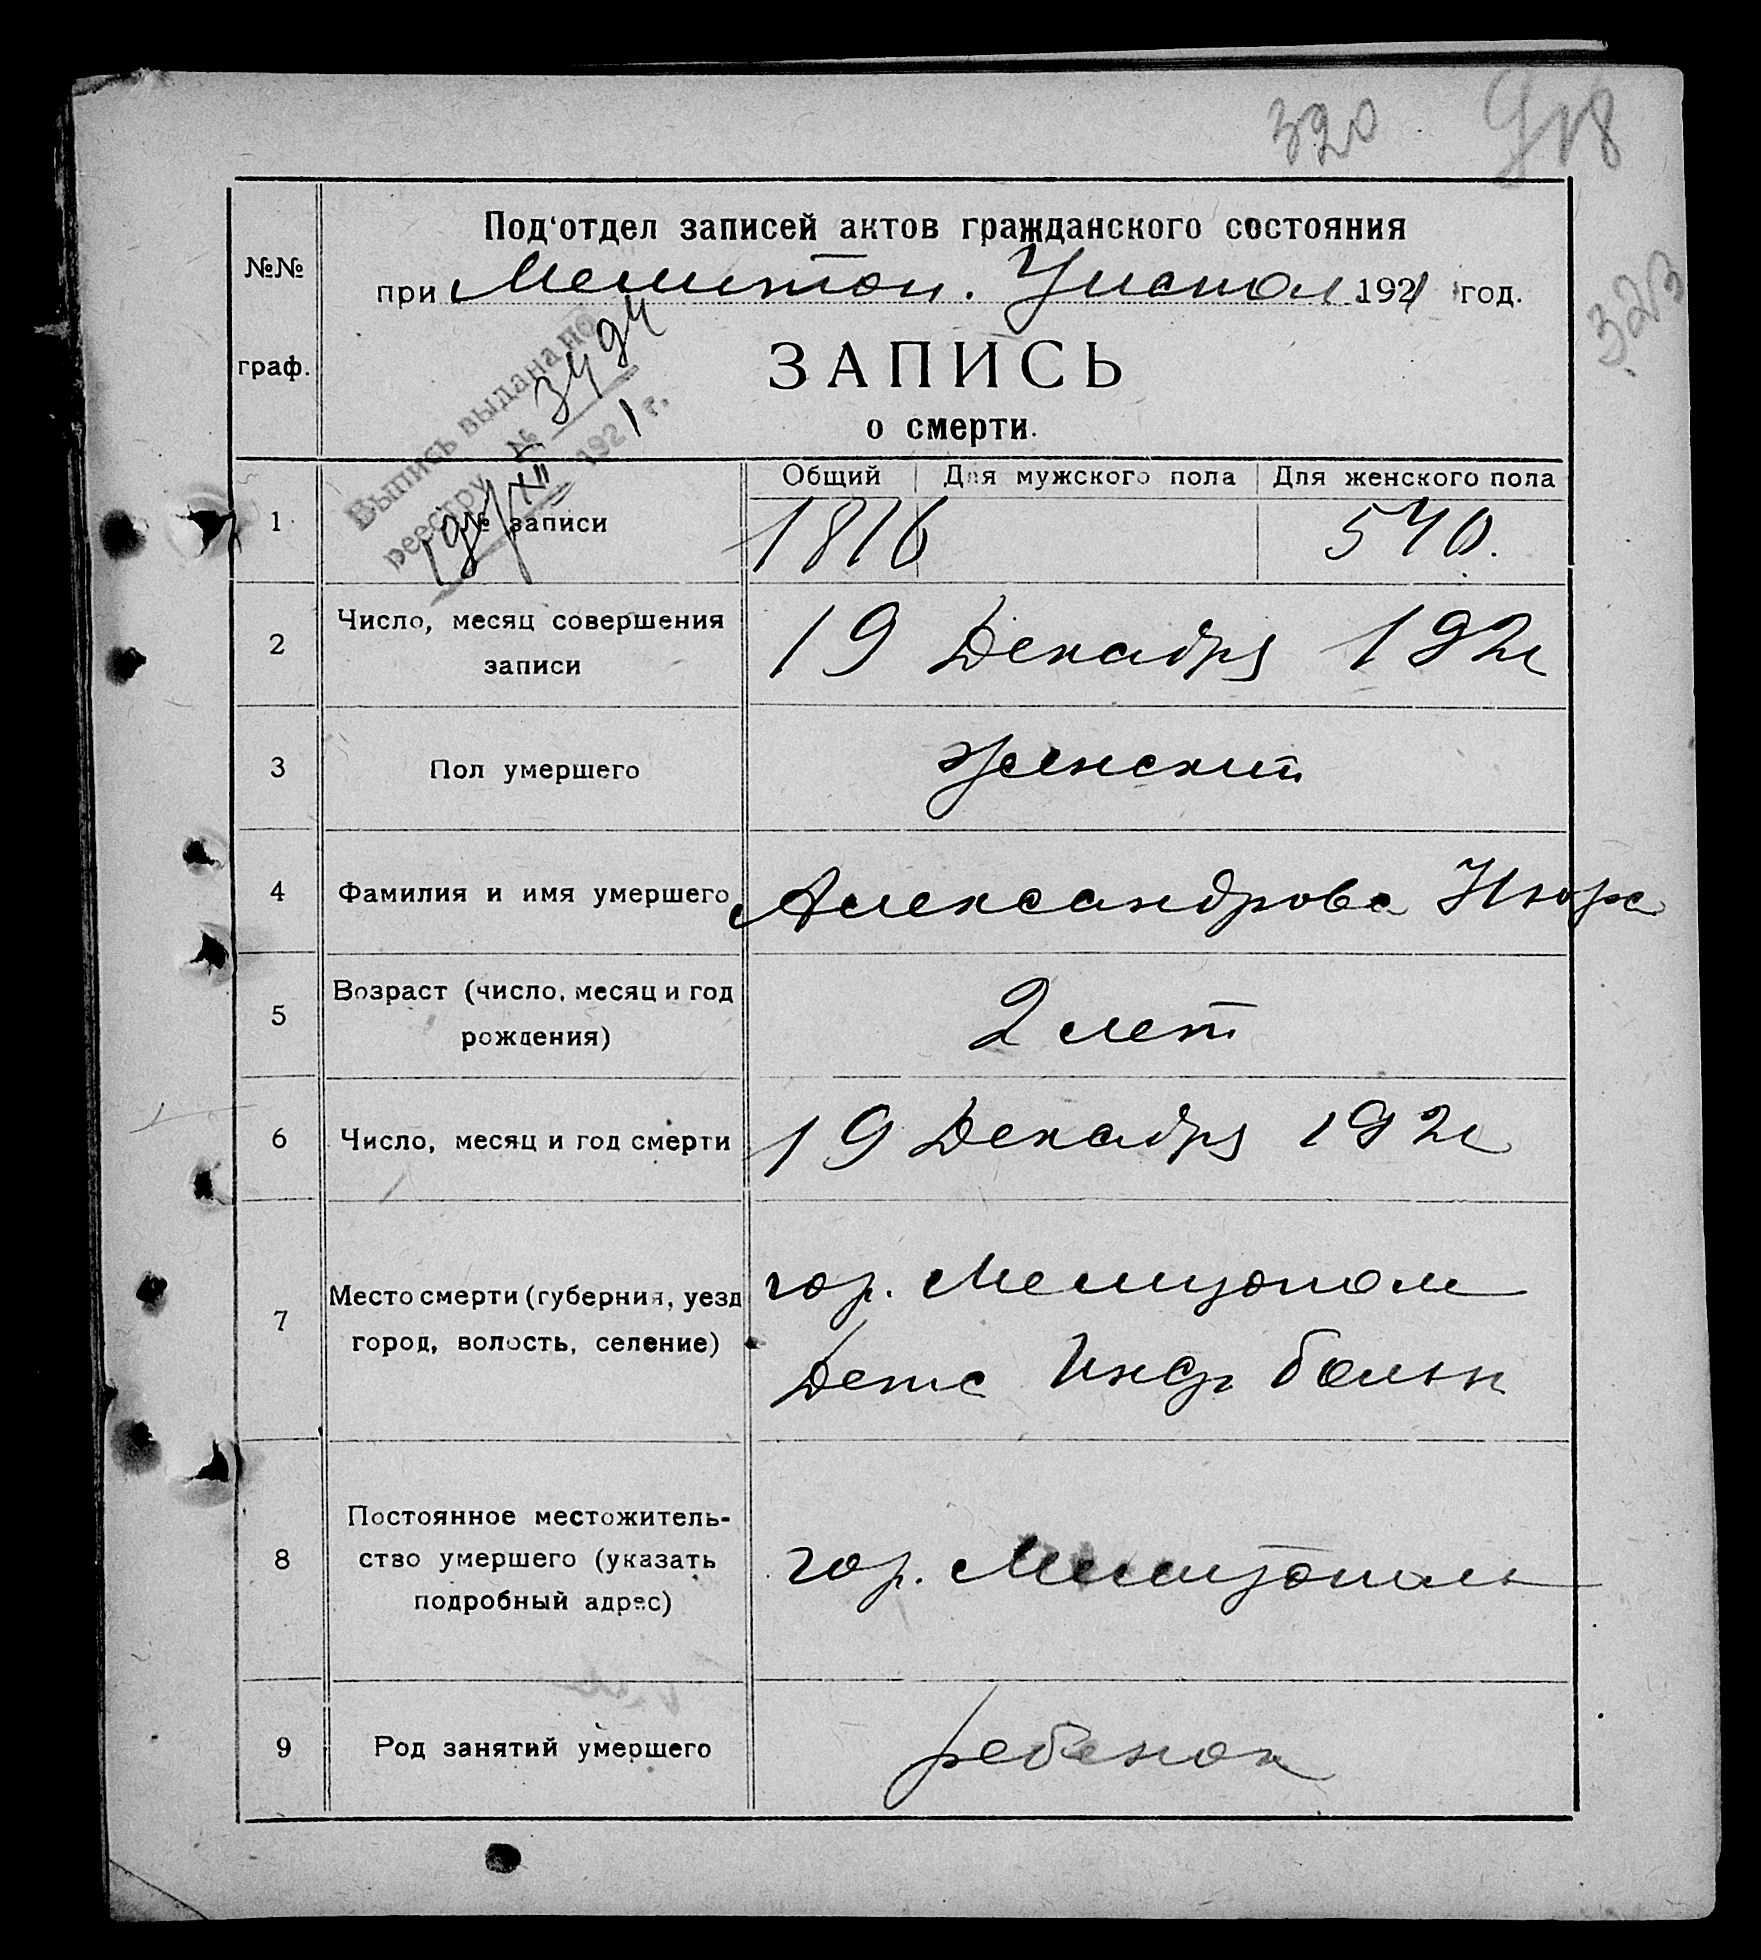 320 918
323
№№
граф.
Под'отдел записей актов гражданского состояния
при Мелитоп. Уиспол 1921 год.
ЗАПИСЬ
о смерти.
Выпись выдана по
реестру № 3494
19/XII 1921 г.
Общий Для мужского пола Для женского пола
1 № записи 1816 540.
2 Число, месяц совершения
записи
19 Декабря 1921
3 Пол умершего женский
4 Фамилия и имя умершего Александрова Нюра
5 Возраст (число, месяц и год
рождения)
2 лет
6 Число, месяц и год смерти 19 Декабря 1921
7 Место смерти (губерния, уезд
город, волость, селение)
гор. Мелитополь
Детс Инф больн
8 Постоянное местожитель-
ство умершего (указать
подробный адрес)
гор. Мелитополь
9 Род занятий умершего ребенок